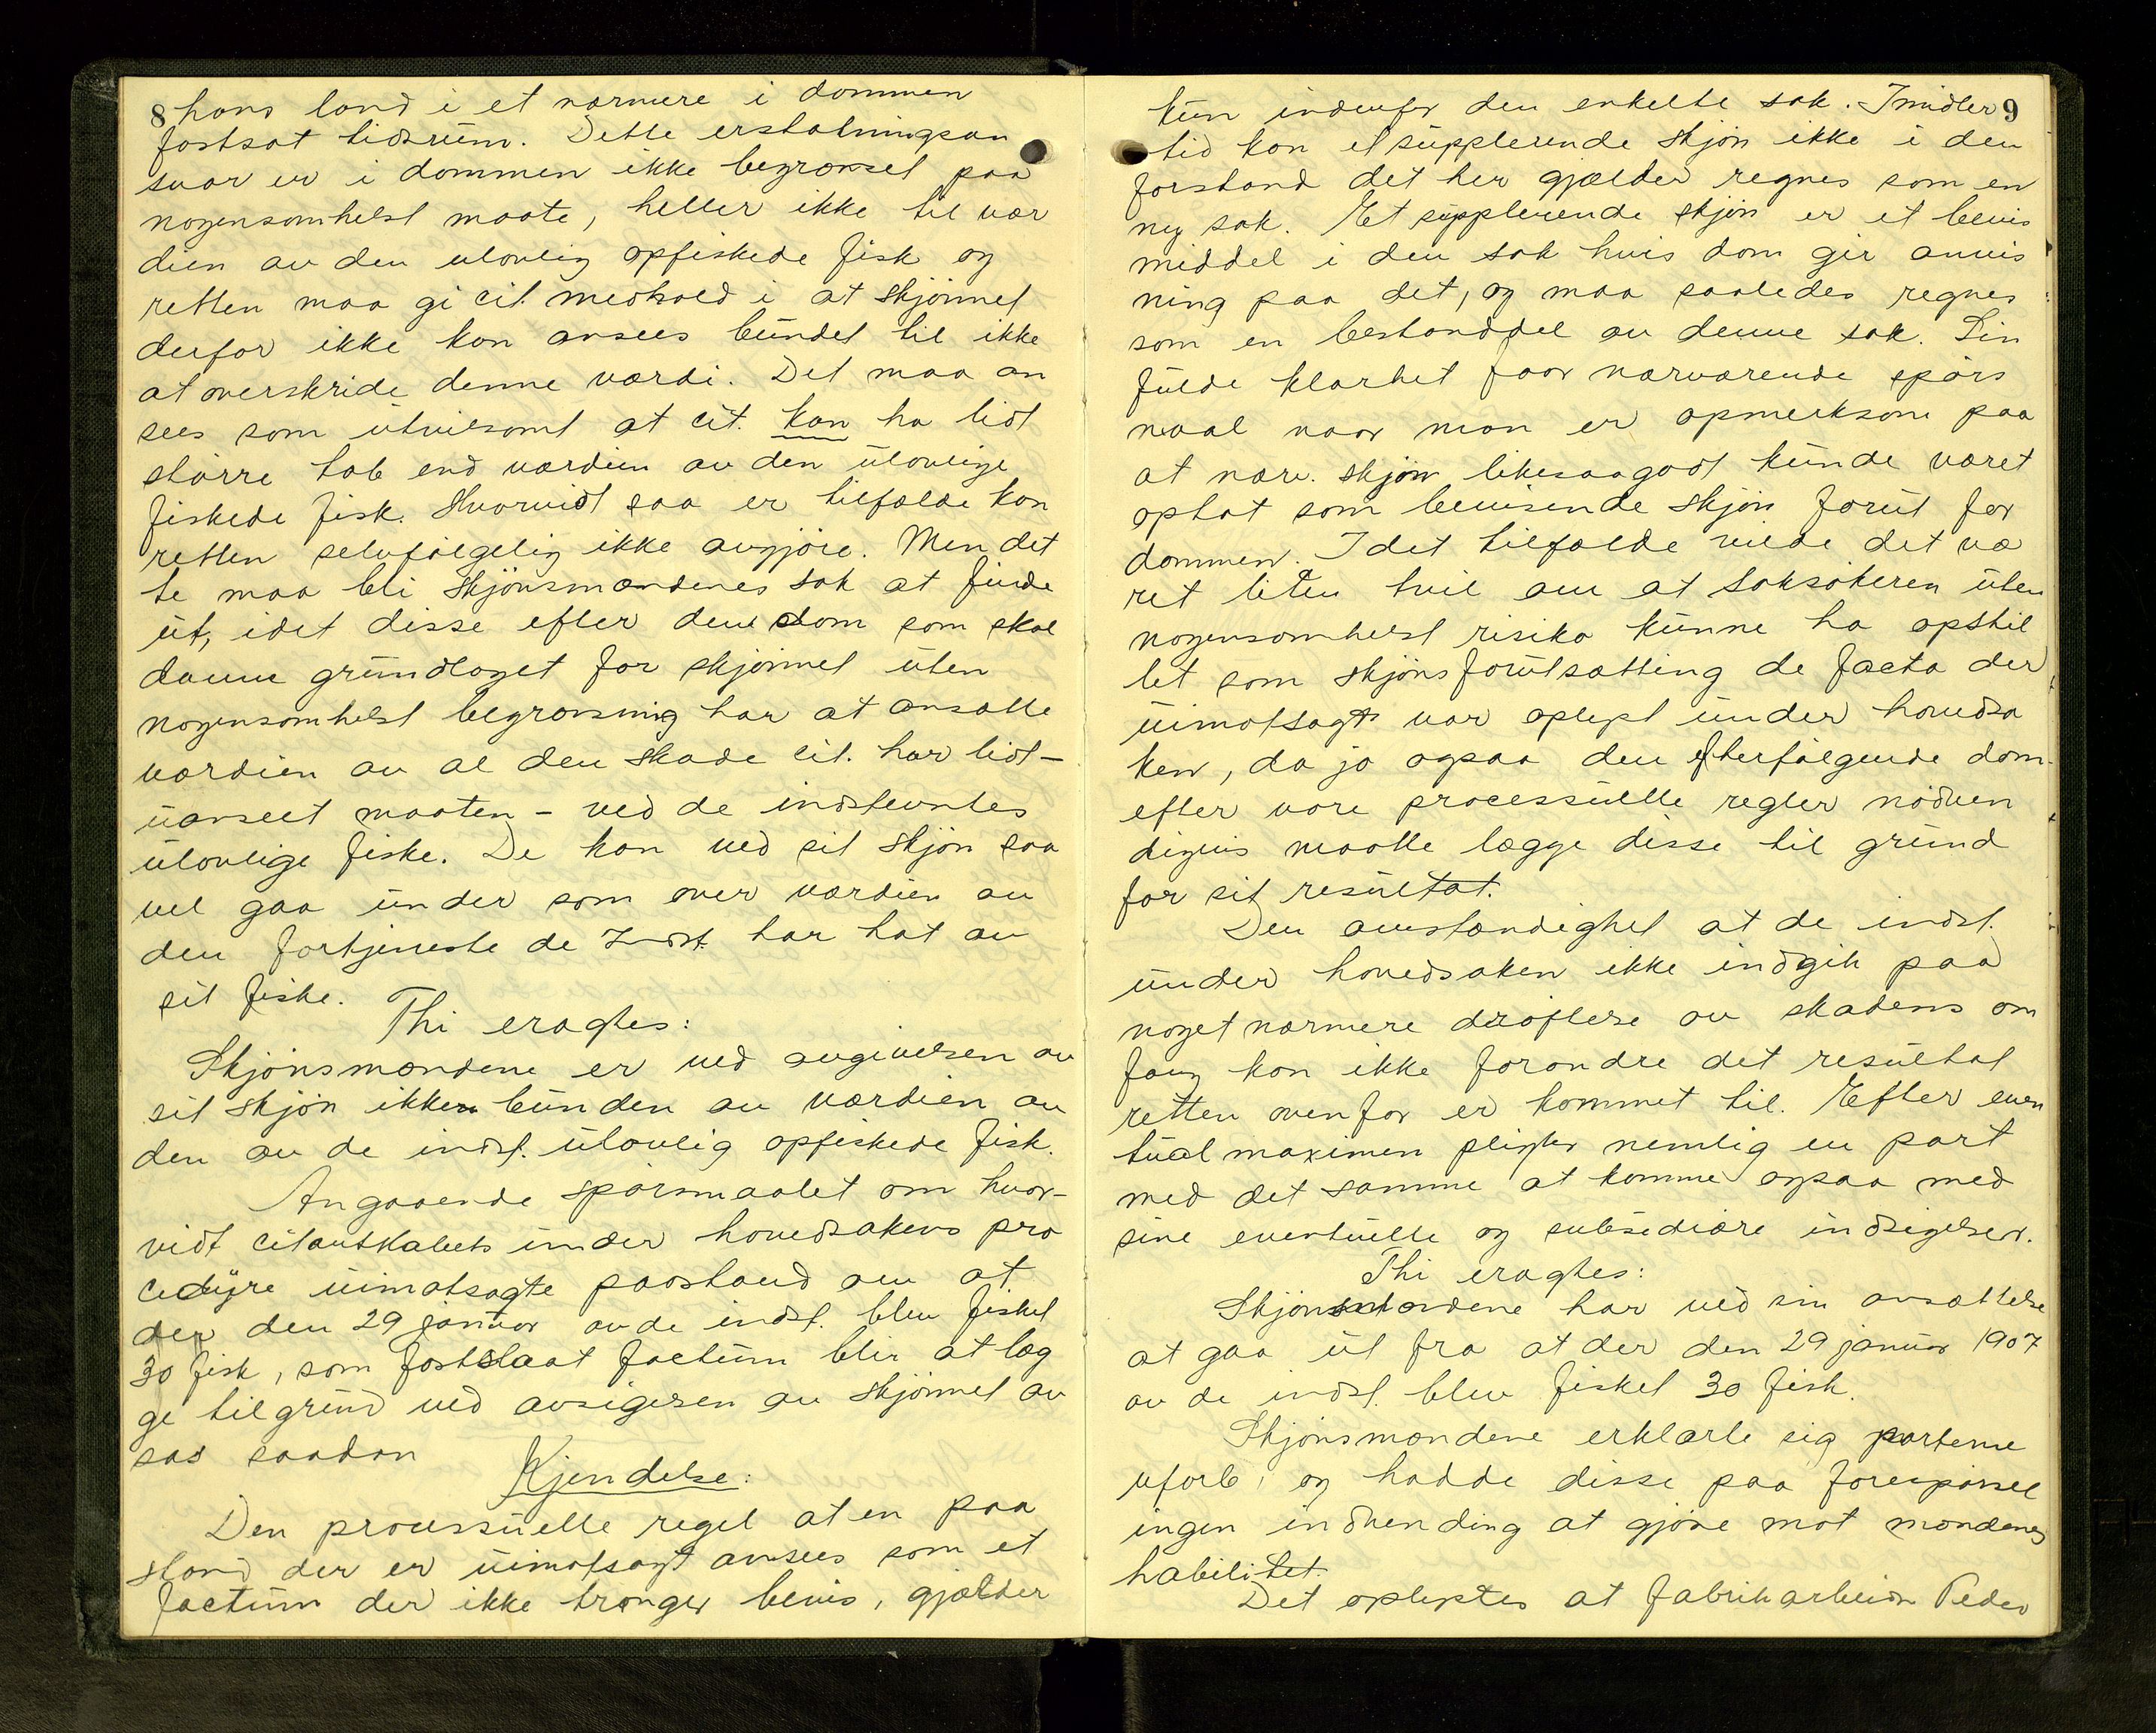 8 hans land i et nærmere i dommen
fastsat tidsrum. Dette erstatningsan
svar er i dommen ikke begrænset paa
nogensomhelst maate, heller ikke til vær
dien av den ulovlig opfiskede fisk og
retten maa gi cit. medhold i at skjønnet
derfor ikke kan ansees bundet til ikke
at overskride denne værdi. Det maa an
sees som utvilsomt at cit. kan ha lidt
større tab end værdien av den ulovlige
fiskede fisk. Hvorvidt saa er tilfælde kan
retten selvfølgelig ikke avgjøre. Men det
te maa bli skjønsmændenes sak at finde
ut, idet disse efter den dom som skal
danne grundlaget for skjønnet uten
nogensomhelst begrænsning har at ansætte
værdien av al den skade cit. har lidt –
uanseet maaten – ved de indstevntes
ulovlige fiske. De kan ved sit skjøn saa
vel gaa under som over værdien av
den fortjeneste de Indst. har hat av
sit fiske.
Thi eragtes:
Skjønsmændene er ved avgivelsen av
sit skjøn ikke bunden av værdien av
den av de indst. ulovlig opfiskede fisk.
Angaaende spørsmaalet om hvor-
vidt citantskabets under hovedsakens pro
cedyre uimotsagte paastand om at
der den 29 januar av de indst. blev fisket
30 fisk, som fastslaat factum blir at læg
ge til grund ved avsigesen av skjønnet av
sas saadan
Kjendelse:
Den processuelle regel at en paa
stand der er uimotsagt ansees som et
factum der ikke trænger bevis, gjælder
kun indenfor den enkelte sak. Imidler 9
tid kan et supplerende skjøn ikke i den
forstand det her gjælder regnes som en
ny sak. Et supplerende skjøn er et bevis
middel i den sak hvis dom gir anvis
ning paa det, og maa saaledes regnes
som en bestanddel av denne sak. Sin
fulde klarhet faar nærværende spørs
maal naar man er opmerksom paa
at nærv. skjøn likesaagodt kunde været
optat som bevisende skjøn forut for
dommen. I det tilfælde vilde det væ
ret liten tvil om at saksøkeren uten
nogensomhelst risiko kunne ha opstil
let som skjønsforutsætting de facta der
uimotsagt var oplyst under hovedsa
ken, da jo ogsaa den efterfølgende dom
efter vore processuelle regler nødven
digvis maatte lægge disse til grund
for sit resultat.
Den omstændighet at de indst.
under hovedsaken ikke indgik paa
noget nærmere drøftelse av skadens om
fang kan ikke forandre det resultat
retten ovenfor er kommet til. Efter even
tualmaximen pligter nemlig en part
med det samme at komme ogsaa med
sine eventuelle og subsediære indsigelser.
Thi eragtes:
Skjønsmændene har ved sin ansættelse
at gaa ut fra at der den 29 januar 1907
av de indst. blev fisket 30 fisk.
Skjønsmændene erklærte sig parterne
uforb, og hadde disse paa forespørsel
ingen indvending at gjøre mot mændenes
habilitet.
Det oplystes at fabrikarbeider Peder